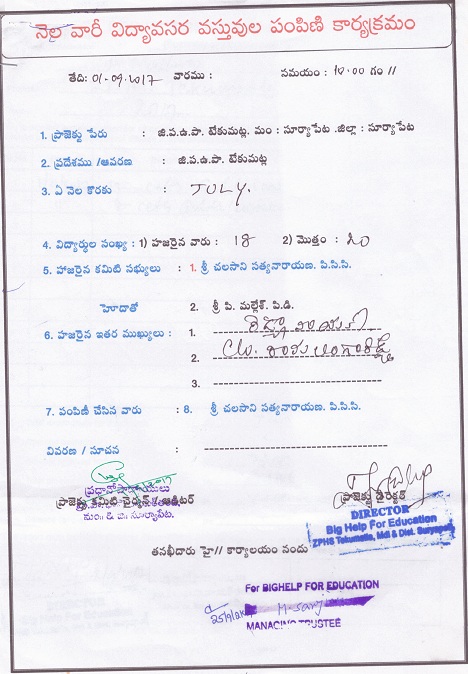 నెల వారీ విద్యావసర వస్తువుల పంపిణి కార్యక్రమం
తేది: 01-09-2017 వారము : సమయం : 10:00 గం //
1. ప్రాజెక్టు పేరు : జి.ప.ఉ.పా. టేకుమట్ల. మం : సూర్యాపేట .జిల్లా : సూర్యాపేట
2. ప్రదేశము /ఆవరణ : జి.ప.ఉ.పా. టేకుమట్ల
3. ఏ నెల కొరకు : JULY.
4. విద్యార్థుల సంఖ్య : 1) హజరైన వారు : 18 2) మొత్తం : 20
5. హాజరైన కమిటి సభ్యులు : 1. శ్రీ చలసాని సత్యనారాయణ. పి.సి.సి.
హెూదాతో 2. శ్రీ పి. మల్లేశ్. పి.డి.
6. హజరైన ఇతర ముఖ్యులు : 1.
2. C/o.
3.
7. పంపిణి చేసిన వారు : 8. శ్రీ చలసాని సత్యనారాయణ. పి.సి.సి.
వివరణ / సూచన :
ప్రధానోపాధ్యాయులు
ప్రాజెక్టు కమిటి చైర్మన్ & ఆడిటర్ ప్రాజెక్టు డైరెక్టర్
మం॥ & జి॥ సూర్యాపేట.
DIRECTOR
Big Help For Education
ZPHS Tekumatla, Mdl & Dist. Suryapet
తనఖీదారు హై// కార్యాలయం నందు
For BIGHELP FOR EDUCATION
MANAGING TRUSTEE